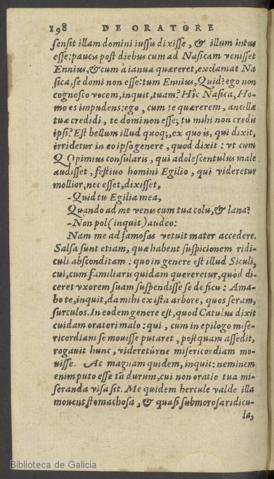 198 DE ORATORE
sensit illam domini iussu dixisse, & illum intus
esse: paucis post diebus cum ad Nasicam venisset
Ennius, & cum à ianua quæreret, exclamat Na
sica, se domi non esse: tum Ennius, Quid? ego non
cognosco vocem, inquit, tuam? Hîc Nasica, Ho-
mo es impudens: ego, cum te quærerem, ancillæ
tuæ credidi, te domi non esse; tu mihi non credis
ipsi? Est bellum illud quoq;, ex quo is, qui dixit,
irridetur in eo ipso genere, quod dixit: vt cum
Q. Opimius consularis, qui adolescentulus malè
audisset, festiuo homini Egilio, qui videretur
mollior, nec esset, dixisset,
-Quid tu Egilia mea,
Quando ad me venis cum tua colu, & lana?
-Non pol (inquit) audeo:
Nam me ad famosas vetuit mater accedere.
Salsa sunt etiam, quæ habent suspicionem ridi-
culi absconditam: quo in genere est illud Siculi,
cui, cum familiaris quidam quereretur, quòd di-
ceret vxorem suam suspendisse se de ficu: Ama-
bo te, inquit, da mihi ex ista arbore, quos seram,
surculos. In eodem genere est, quod Catulus dixit
cuidam oratori malo: qui, cum in epilogo mise-
ricordiam se mouisse putaret, postquam assedit,
rogauit hunc, videretúrne misericordiam mo-
uisse. Ac magnam quidem, inquit: neminem
enim puto esse tã durum, cui non oratio tua mi-
seranda visa sit. Me quidem hercule valde illa
mouent stomachosa, & quasi submorosa ridicu-
la,
Biblioteca de Galicia